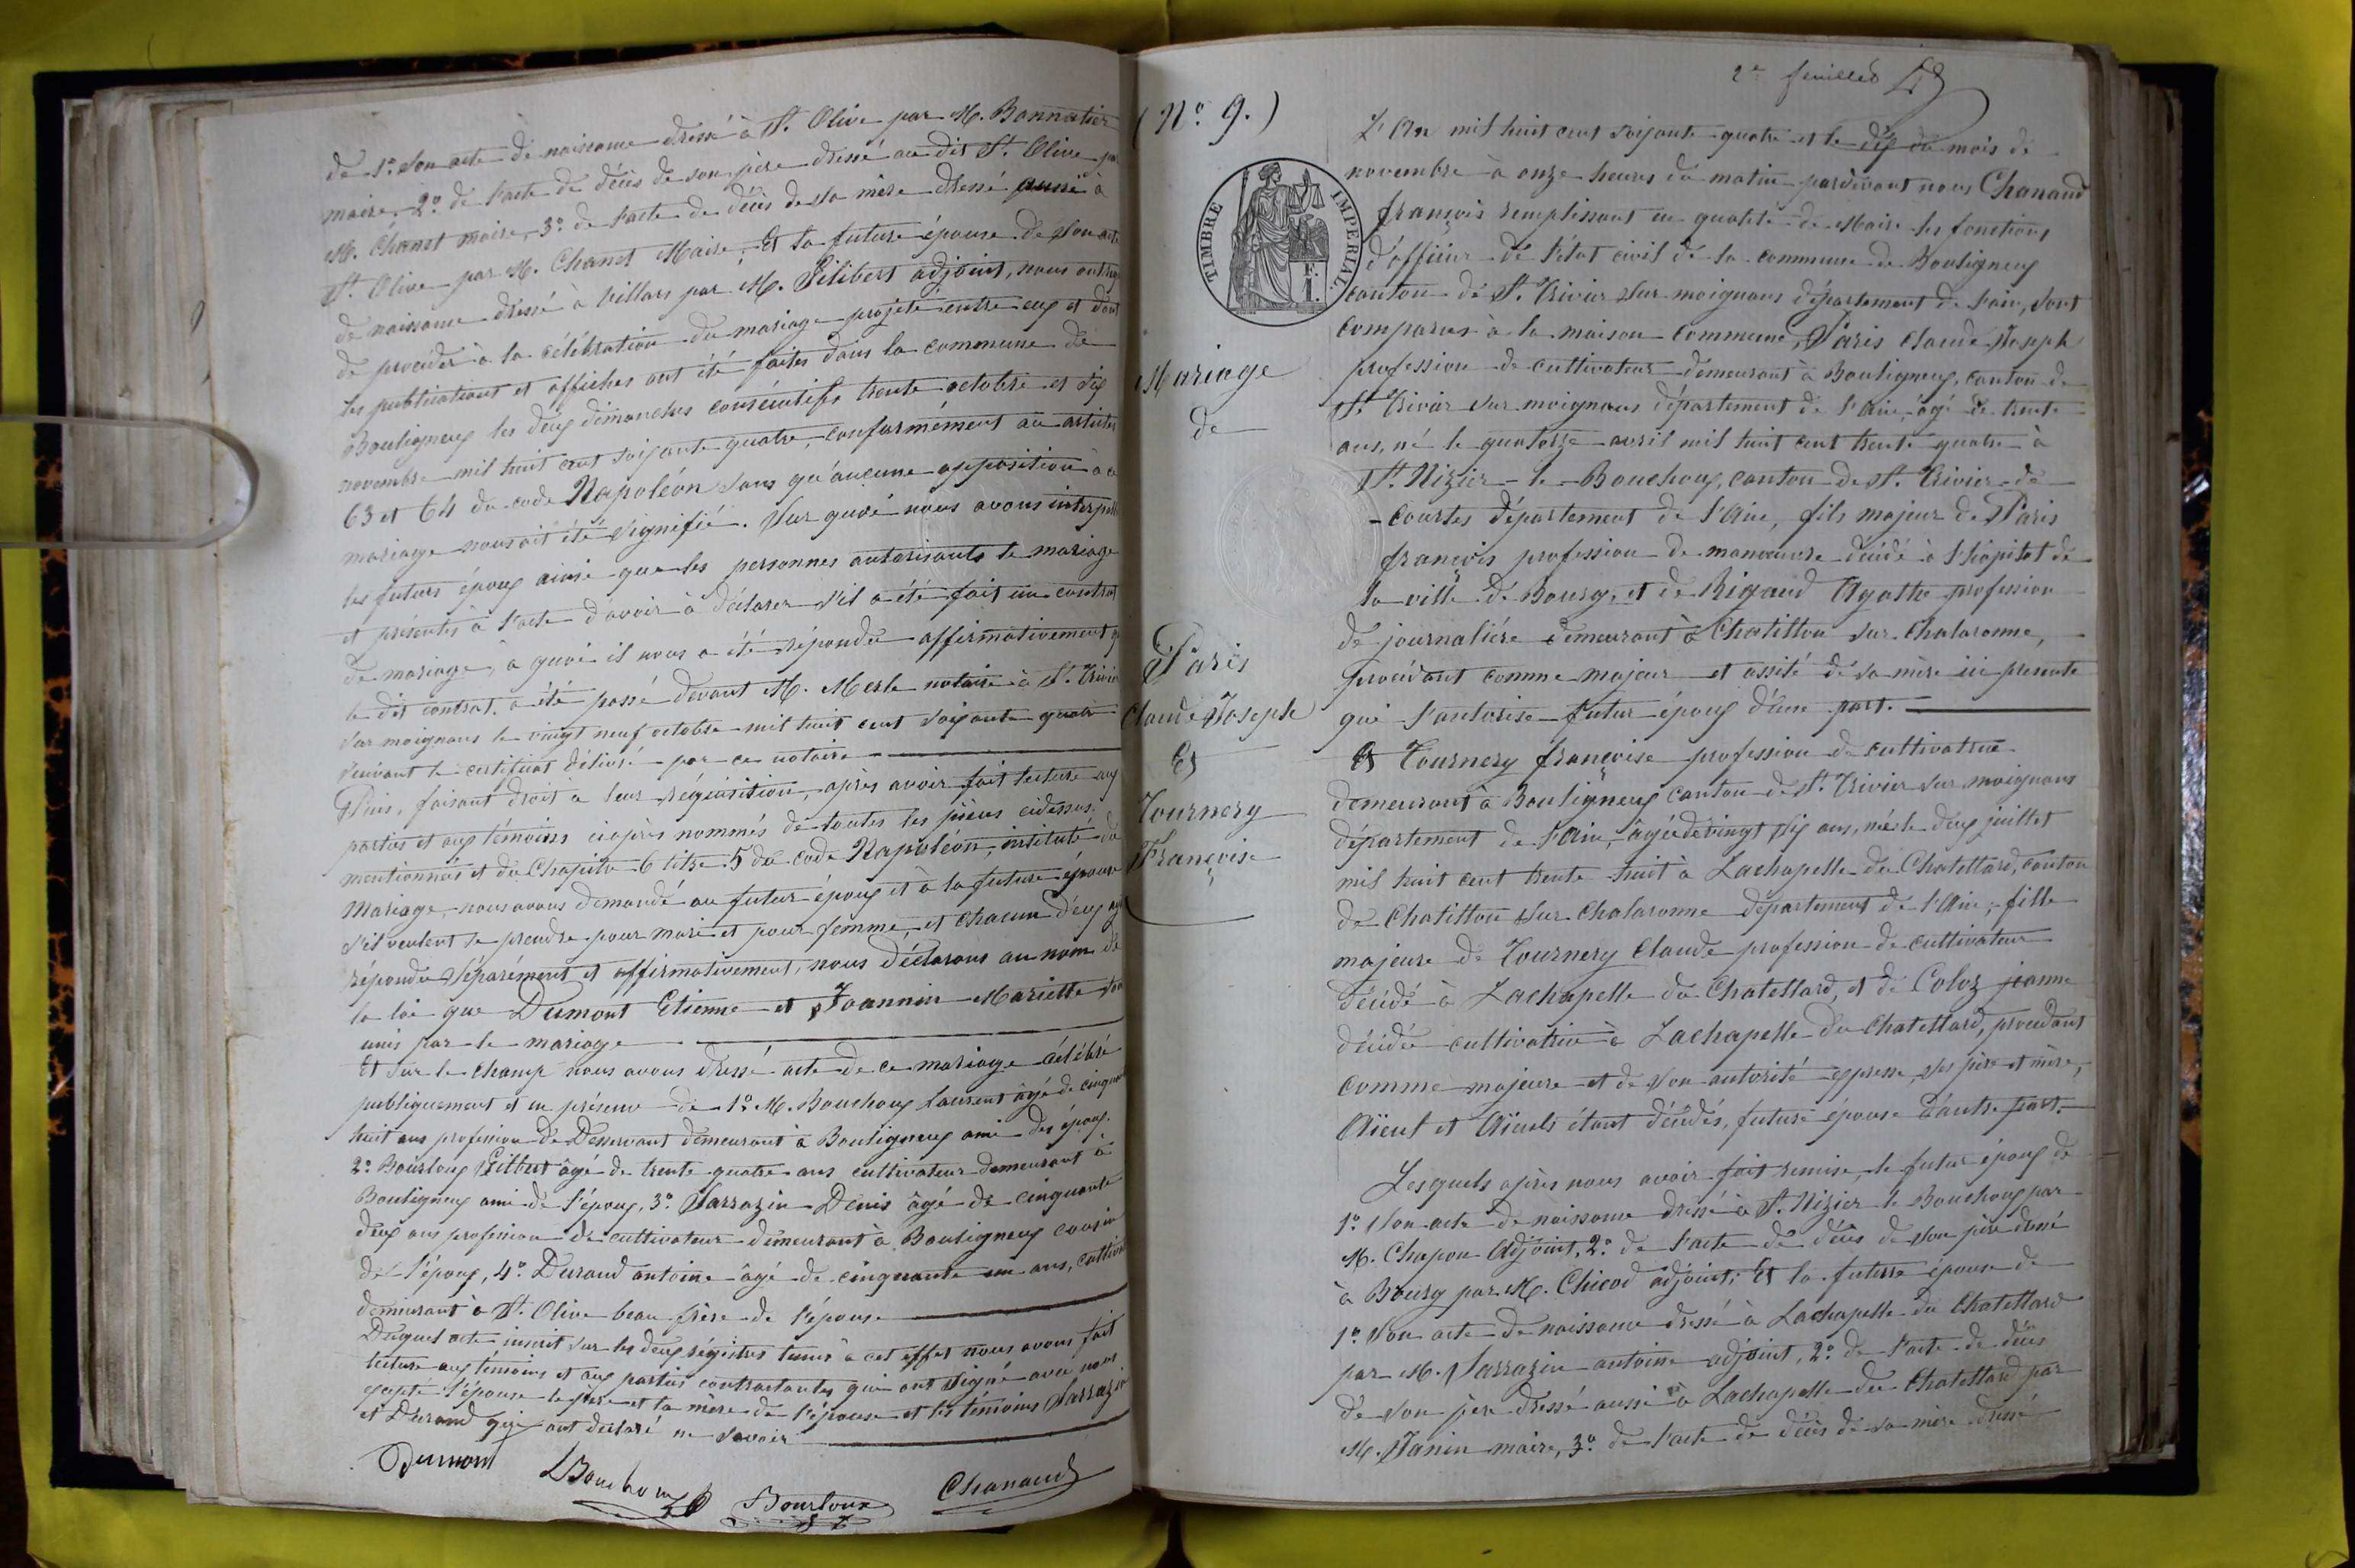 de 1º son acte de naissance dressé à St. Olive par M. Bonnatier
maire, 2º de l'acte de décès de son père dressé au dit St. Olive par
M. Chanet maire, 3º de l'acte de décès de sa mère dressé aussi à
St. Olive par M. Chanet Maire; Et la future épouse de son acte
de naissance dressé à Villars par M. Pilibert adjoint, nous ont requis
de procéder à la célébration du mariage projeté entre eux et dont
les publications et affiches ont été faites dans la commune de
Bouligneux les deux dimanches consécutifs trente octobre et six
novembre mil huit cent soixante quatre, conformément au articles
63 et 64 du code Napoléon sans qu'aucune opposition à ce
mariage nous ait été signifié. Sur quoi nous avons interpellé
les futurs époux ainsi que les personnes autorisants le mariage
et présentes à l'acte d'avoir à déclarer s'il a été fait un contrat
de mariage, à quoi il nous a été répondu affirmativement que
le dit contrat a été passé devant M. Merle notaire à St. Trivier
sur moignans le vingt neuf octobre mil huit cent soixante quatre
suivant le certificat délivré par ce notaire
Puis, faisant droit à leur réquisition, après avoir fait lecture aux
parties et aux témoins ciaprès nommés de toutes les pièces cidessus
mentionnés et du Chapitre 6 titre 5 du code Napoléon, intitulé du
Mariage, nous avons demandé au futur époux et à la future épouse
s'il veulent se prendre pour mari et pour femme, et chacun d'eux ayant
répondu séparément et affirmativement, nous déclarons au nom de
la loi que Dumont Etienne et Joannin Mariette sont
unis par le mariage
Et sur le champ nous avons dressé acte de ce mariage célébré
publiquement et en présence de 1º M. Bouchoux Laurent âgé de cinquante
huit ans profession de Desservant demeurant à Bouligneux ami des époux.
2º Bourloux Gilbert âgé de trente quatre ans cultivateur demeurant à
Bouligneux ami de l'époux, 3º Sarrazin Denis âgé de cinquante
deux ans profession de cultivateur demeurant à Bouligneux cousin
de l'époux, 4º Durand antoine âgé de cinquante un ans, cultivateur
demeurant à St. Olive beau frère de l'épouse
Duquel acte inscrit sur les deux régistres tenus à cet effet nous avons fait
lecture aux témoins et aux parties contractantes qui ont signé avec nous
excepté l'épouse le père et la mère de l'épouse et les témoins Sarrazin
et Durand qui ont déclaré ne savoir
Dumont Bouchoux Bourloux Chanaud
2e feuillés
(Nº. 9.)
TIMBRE IMPERIAL.
F.
1.
Mariage
de
Paris
Claude Joseph
Et
Tournery
Françoise
L'An mil huit cent soixante quatre et le dix du mois de
novembre à onze heures du matin pardevant nous Chanaud
françois remplissant en qualité de Maire les fonctions
d'officier de l'état civil de la commune de Bouligneux
canton de St. Trivier sur moignans département de l'ain, sont
comparus à la maison commune, Paris claude Joseph
profession de cultivateur demeurant à Bouligneux, canton de
St. Trivier sur moignans département de l'ain âgé de trente
ans, né le quatorze avril mil huit cent trente quatre à
St. Nizier-le-Bouchoux, canton de St. Trivier-de
-courtes département de l'ain, fils majeur de Paris
françois profession de manœuvre décédé à l'hôpital de
la ville de Bourg, et de Rigaud Agathe profession
de journalière demeurant à Chatillon sur Chalaronne,
procédant comme majeur et assité de sa mère ici presente
qui l'autorise futur époux d'une part.
Et Tournery françoise profession de cultivatrice
demeurant à Bouligneux canton de St. Trivier sur moignans
département de l'ain, âgée de vingt six ans, née le deux juillet
mil huit cent trente huit à Lachapelle du Chatellard, canton
de Chatillon sur Chalaronne département de l'ain, fille
majeure de Tournery Claude profession de cultivateur
décédé à Lachapelle du Chatellard, et de Coloz jeanne
décédée cultivatrice à Lachapelle du Chatellard, procédant
comme majeure et de son autorité expresse, ses père et mère,
Aïeul et Aïeuls étant décédés, future épouse d'autre part.
Lesquels après nous avoir fait remise, le futur époux de
1º Son acte de naissance dressé à St. Nizier le Bouchoux par
M. Chapon Adjoint, 2º de l'acte de décès de son père dressé
à Bourg par M. Chicod adjoint; Et la future épouse de
1º Son acte de naissance dressé à Lachapelle du Chatellard
par M. Sarrazin antoine adjoint, 2º de l'acte de décès
de son père dressé aussi à Lachapelle du Chatellard par
M. Janin maire, 3º de l'acte de décès de sa mère dressé